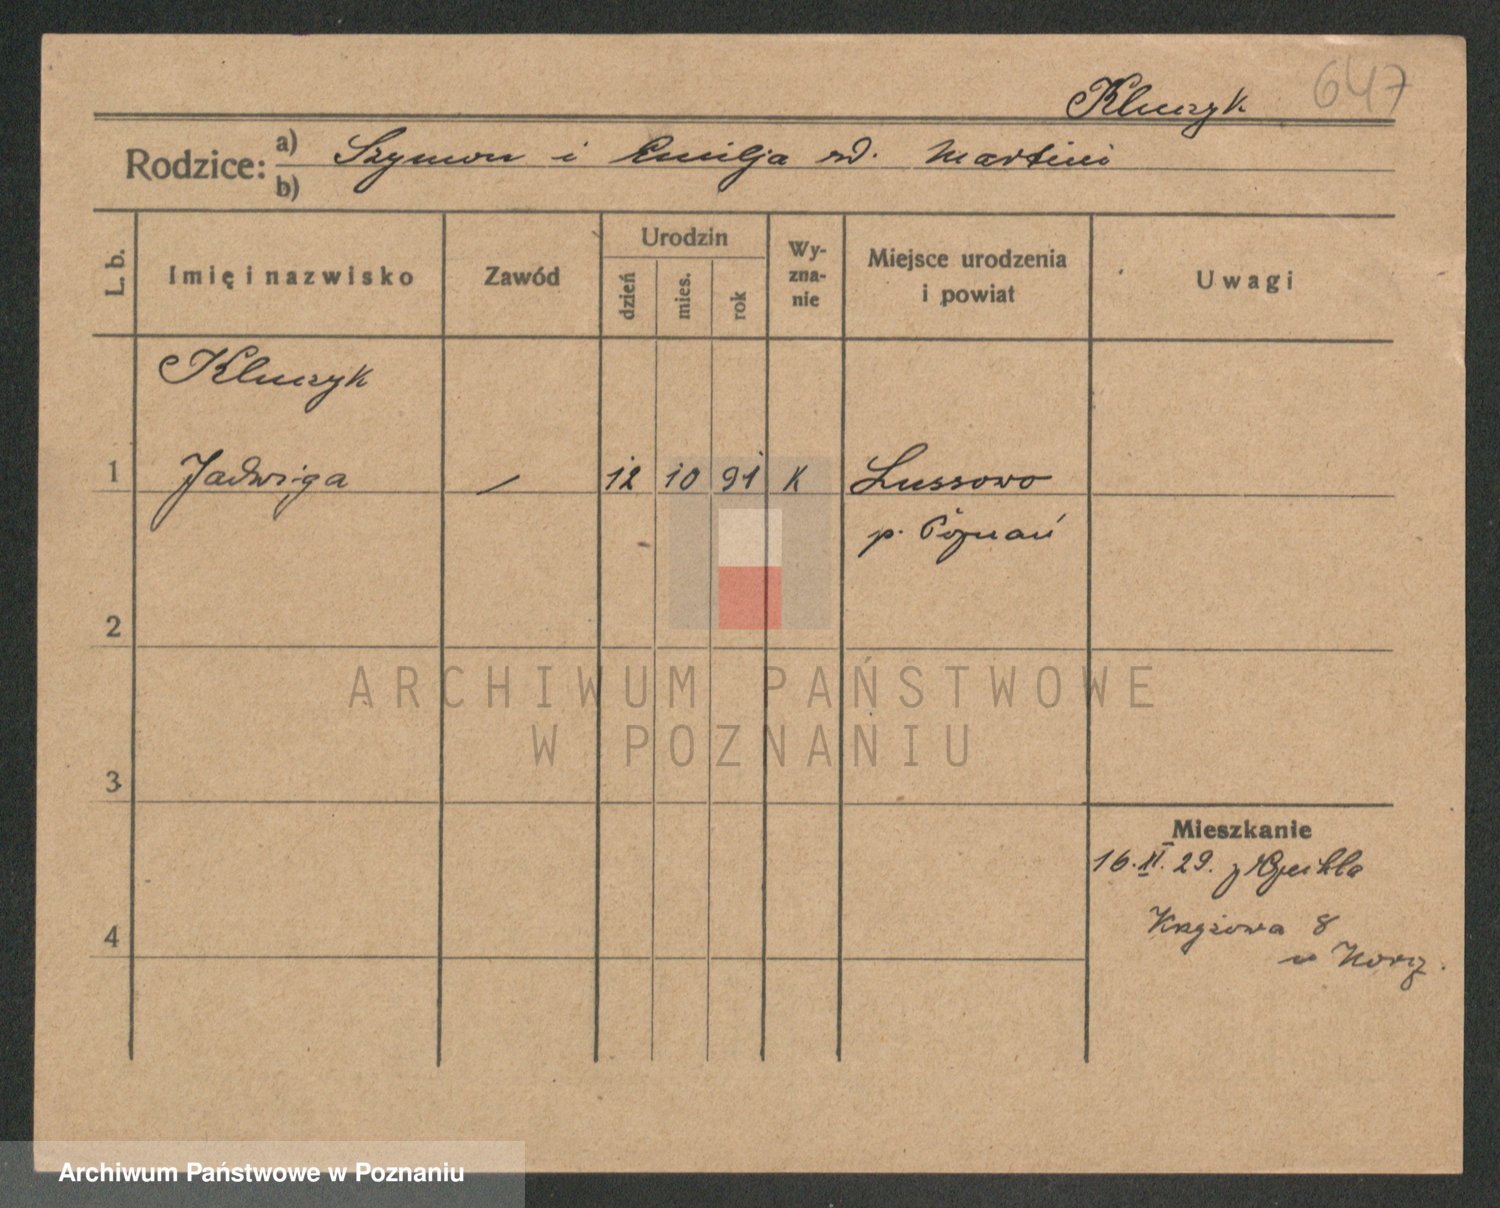 Kluczyk 647
Rodzice: a) Szymon i Emilja zd. Martini
b)
L. b.
Imię i nazwisko
Zawód
Urodzin
dzień
mies.
rok
Wy-
zna-
nie
Miejsce urodzenia
i powiat
Uwagi
Kluczyk
1 Jadwiga / 12 10 91 K Lussowo
p. Poznań
2
ARCHIWUM PAŃSTWOWE
W POZNANIU
3
Mieszkanie
16. II. 29. z
Krzyżowa 8
4
Archiwum Państwowe w Poznaniu